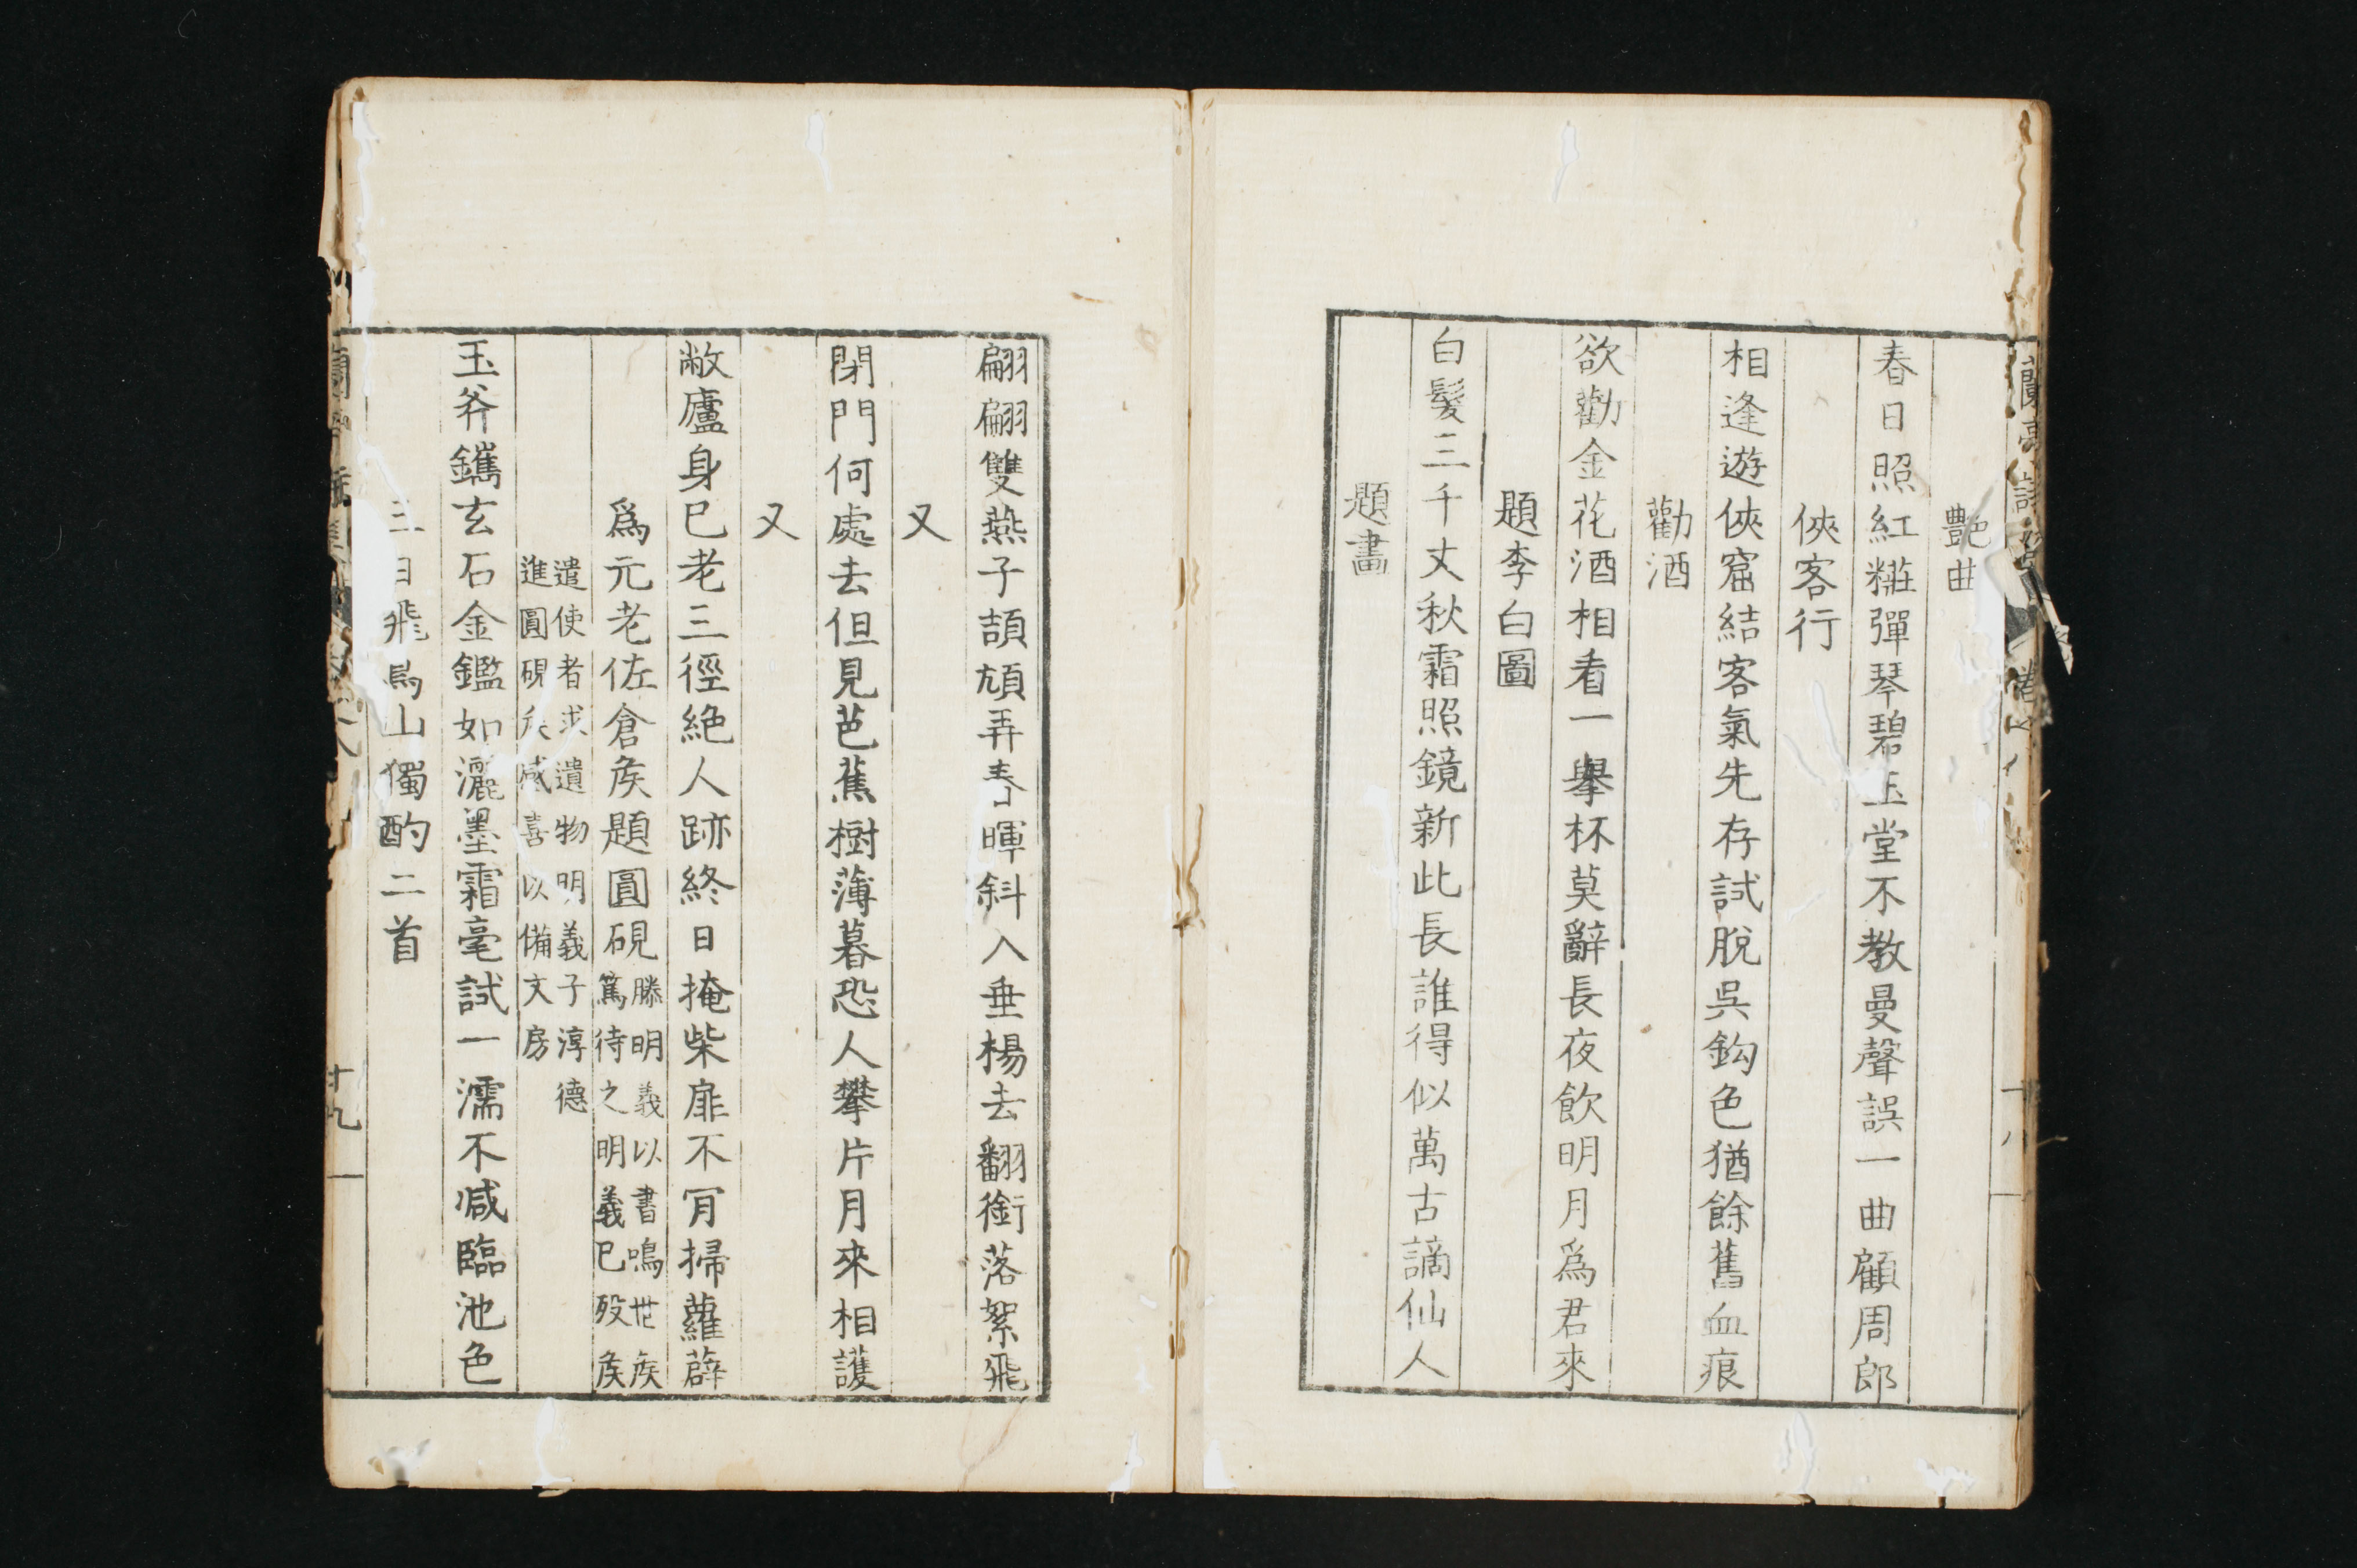 艶曲
春日照紅糚彈琴碧玉堂不教曼聲誤一曲顧周郎
俠客行
相逢遊俠窟結客氣先存試脫吳鈎色猶餘舊血痕
勸酒
欲勸金花酒相看一舉杯莫辭長夜飲明月爲君來
題李白圖
白髮三千丈秋霜照鏡新此長誰得似萬古謫仙人
題畫
翩翩雙燕子頡頏弄春暉斜入垂楊去翻銜落絮飛
又
閉門何處去但見芭蕉樹薄暮恐人攀片月來相護
又
敝廬身已老三徑絶人跡終日掩柴扉不肎掃蘿薜
爲元老佐倉矦題圓硯
滕明義以書鳴世矦
篤待之明義已歿矦
遣使者求遺物明義子淳德
進圓硯矦感喜以備文房
玉斧鑴玄石金鑑如灑墨霜毫試一濡不減臨池色
三日飛鳥山獨酌二首
十九